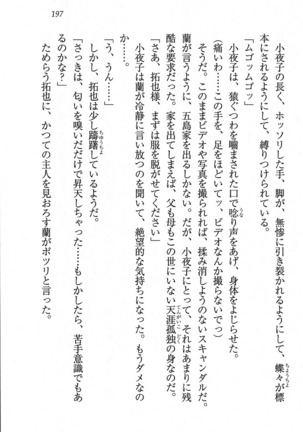 197
小夜子の長く、ホッソリした手、脚が、無惨に引き裂かれるようにして、蝶々が標
本にされるようにして、縛りつけられている。
「ムゴッムゴッ」
小夜子は、猿ぐつわを嚙まされた口で唸り声をあげ、身体をよじらせた。
（痛いわ……この手を、足をほどいてッ、ビデオなんか撮らないでっ）
そうだ。このままビデオや写真を撮られれば、揉み消しようのないスキャンダルだ。
蘭が言うように、五島家を出るしかない。だが、小夜子にとって、それはあまりに残
酷な要求だった。家を出てしまえば、父も母もこの世にいない天涯孤独の身なのだ。
「さあ、拓也様、まずは服を脱がせてください」
小夜子は蘭が冷静に言い放つのを聞いて、絶望的な気持ちになった。もうダメなの
か……。
「う、うん……」
しかし、拓也は少し躊躇しているようだ。
「さっきは、匂いを嗅いだだけで昇天しちゃった……もしかしたら、苦手意識でもあ
るのかな？」
ためらう拓也に、かつての主人を見おろす蘭がポツリと言った。